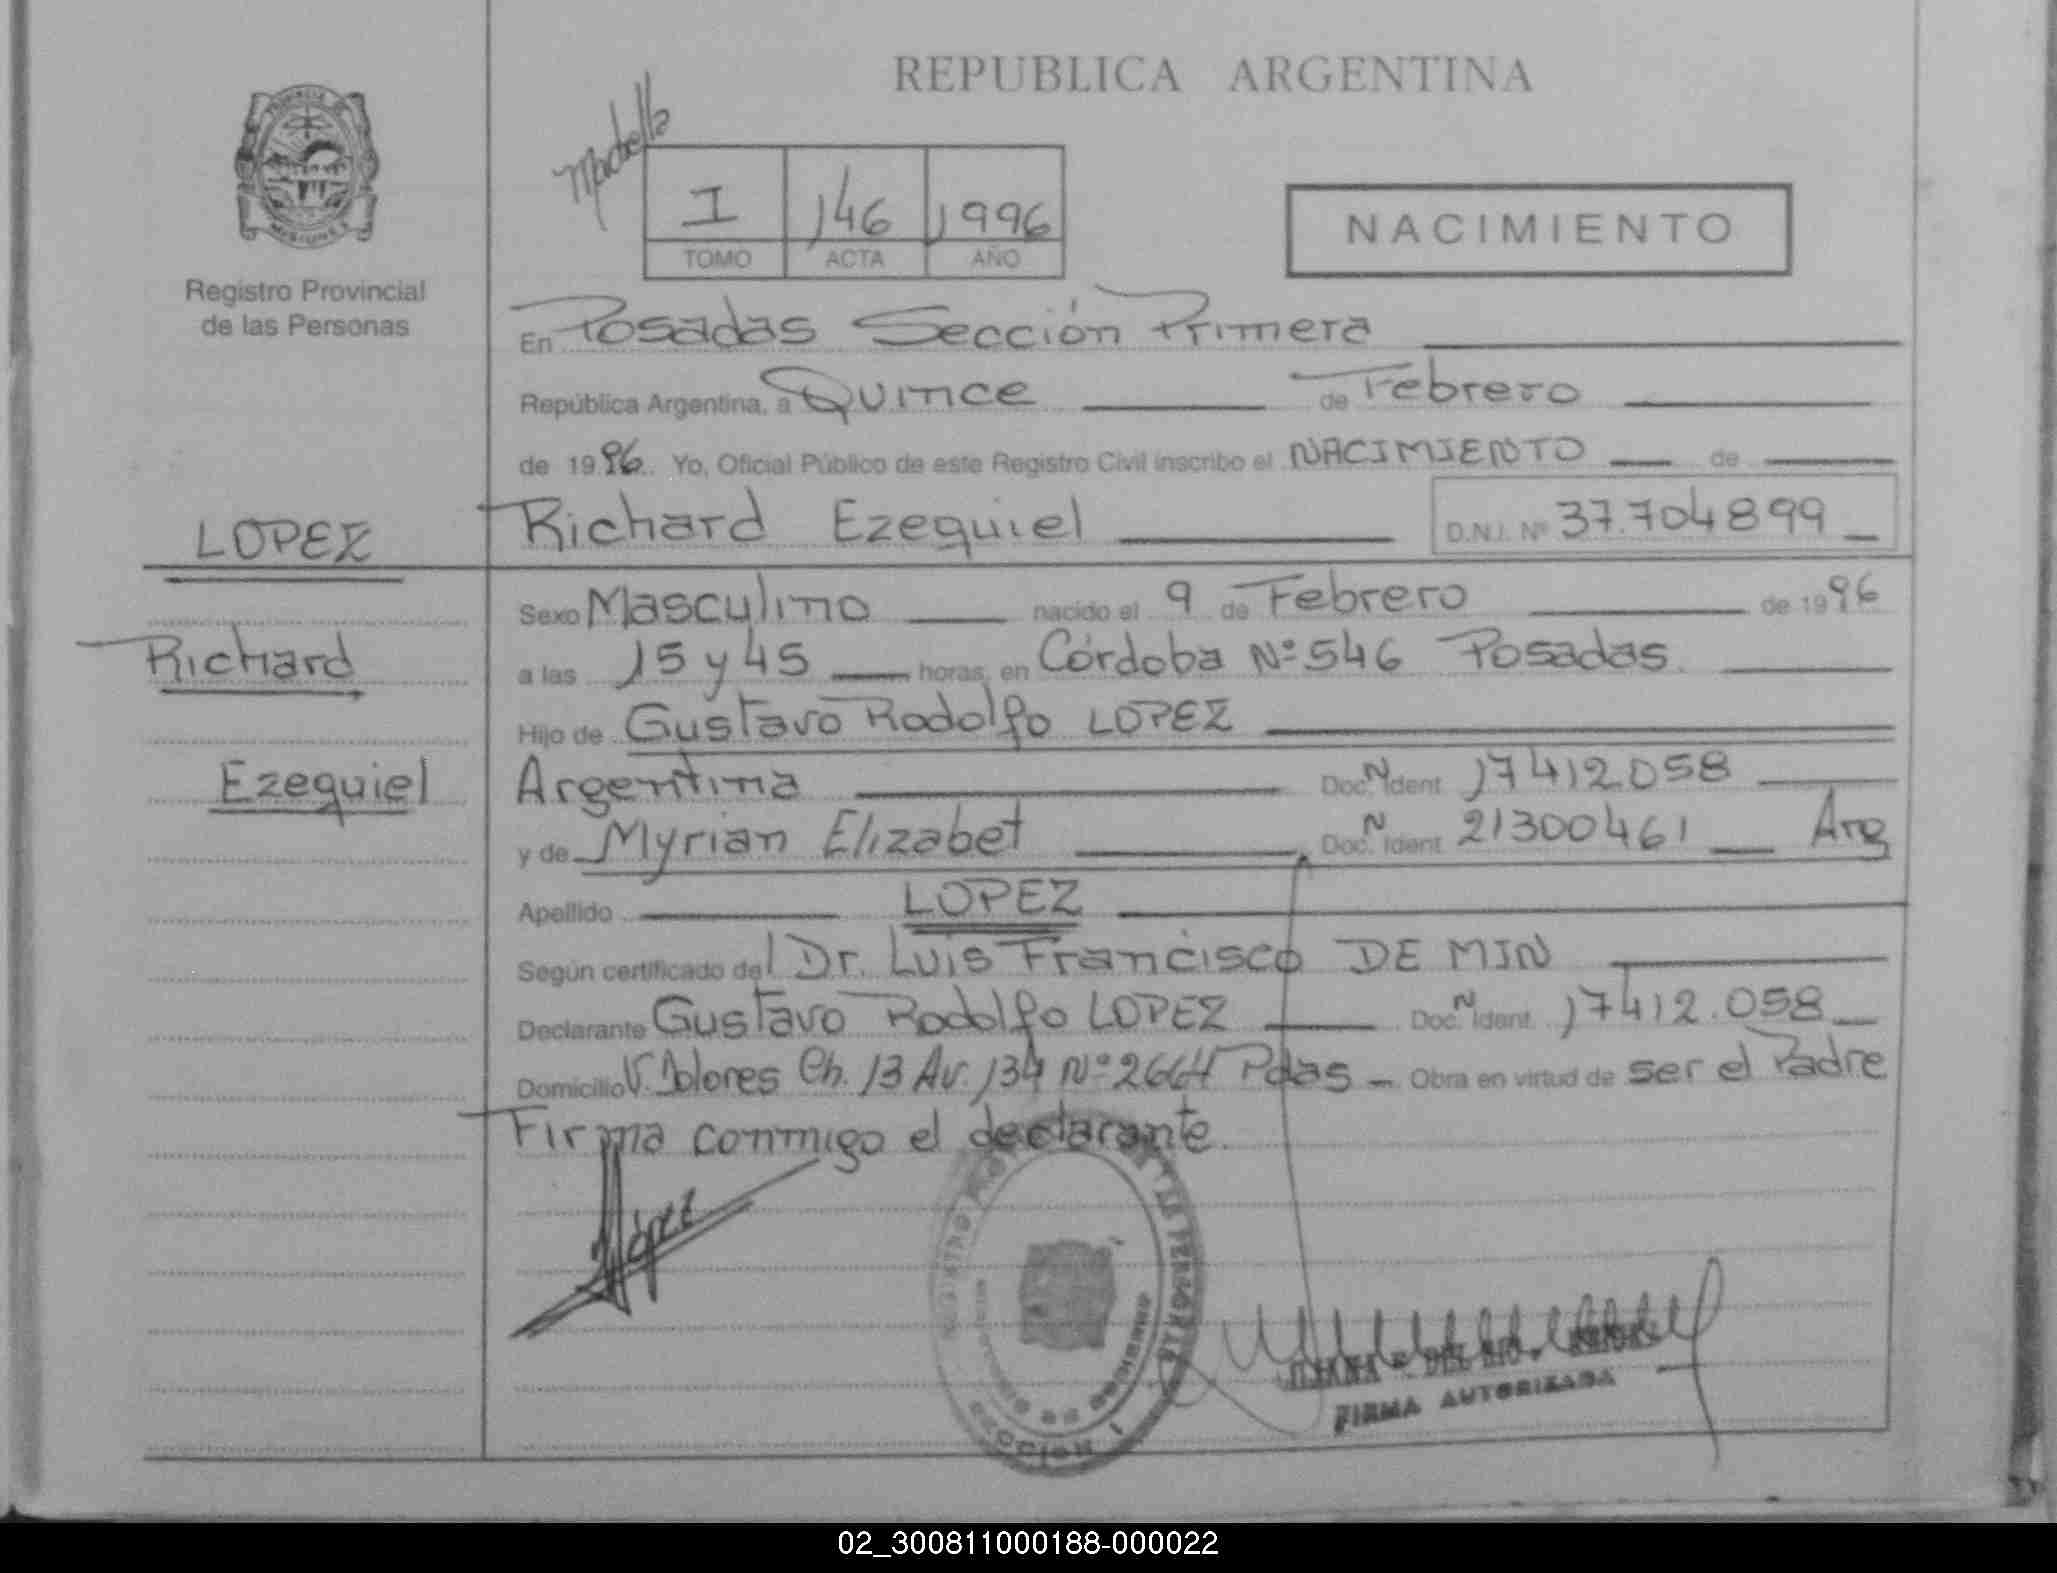 REPUBLICA ARGENTINA
PROVINCIA DE
MISIONES
Registro Provincial
de las Personas
I 146 1996
TOMO ACTA AÑO
NACIMIENTO
En Posadas Sección Primera
República Argentina, a Quince de Febrero
de 1996. Yo, Oficial Público de este Registro Civil inscribo el NACIMIENTO de
LOPEZ
Richard Ezequiel D.N.I. Nº 37.704899
Sexo Masculino nacido el 9 de Febrero de 1996
Richard
a las 15 y 45 horas, en Córdoba Nº 546 Posadas.
Hijo de Gustavo Rodolfo LOPEZ
Ezequiel
Argentina Doc. N Ident 17412.058
y de Myrian Elizabet Doc. N Ident 21300461 Arg
Apellido LOPEZ
Según certificado del Dr. Luis Francisco DE MIN
Declarante Gustavo Rodolfo LOPEZ Doc. N Ident. 17412.058
Domicilio V. Dolores Ch. 13 Av. 134 Nº 2664 Pdas - Obra en virtud de ser el Padre
Firma conmigo el declarante.
López
FIRMA AUTORIZADA
02_300811000188-000022